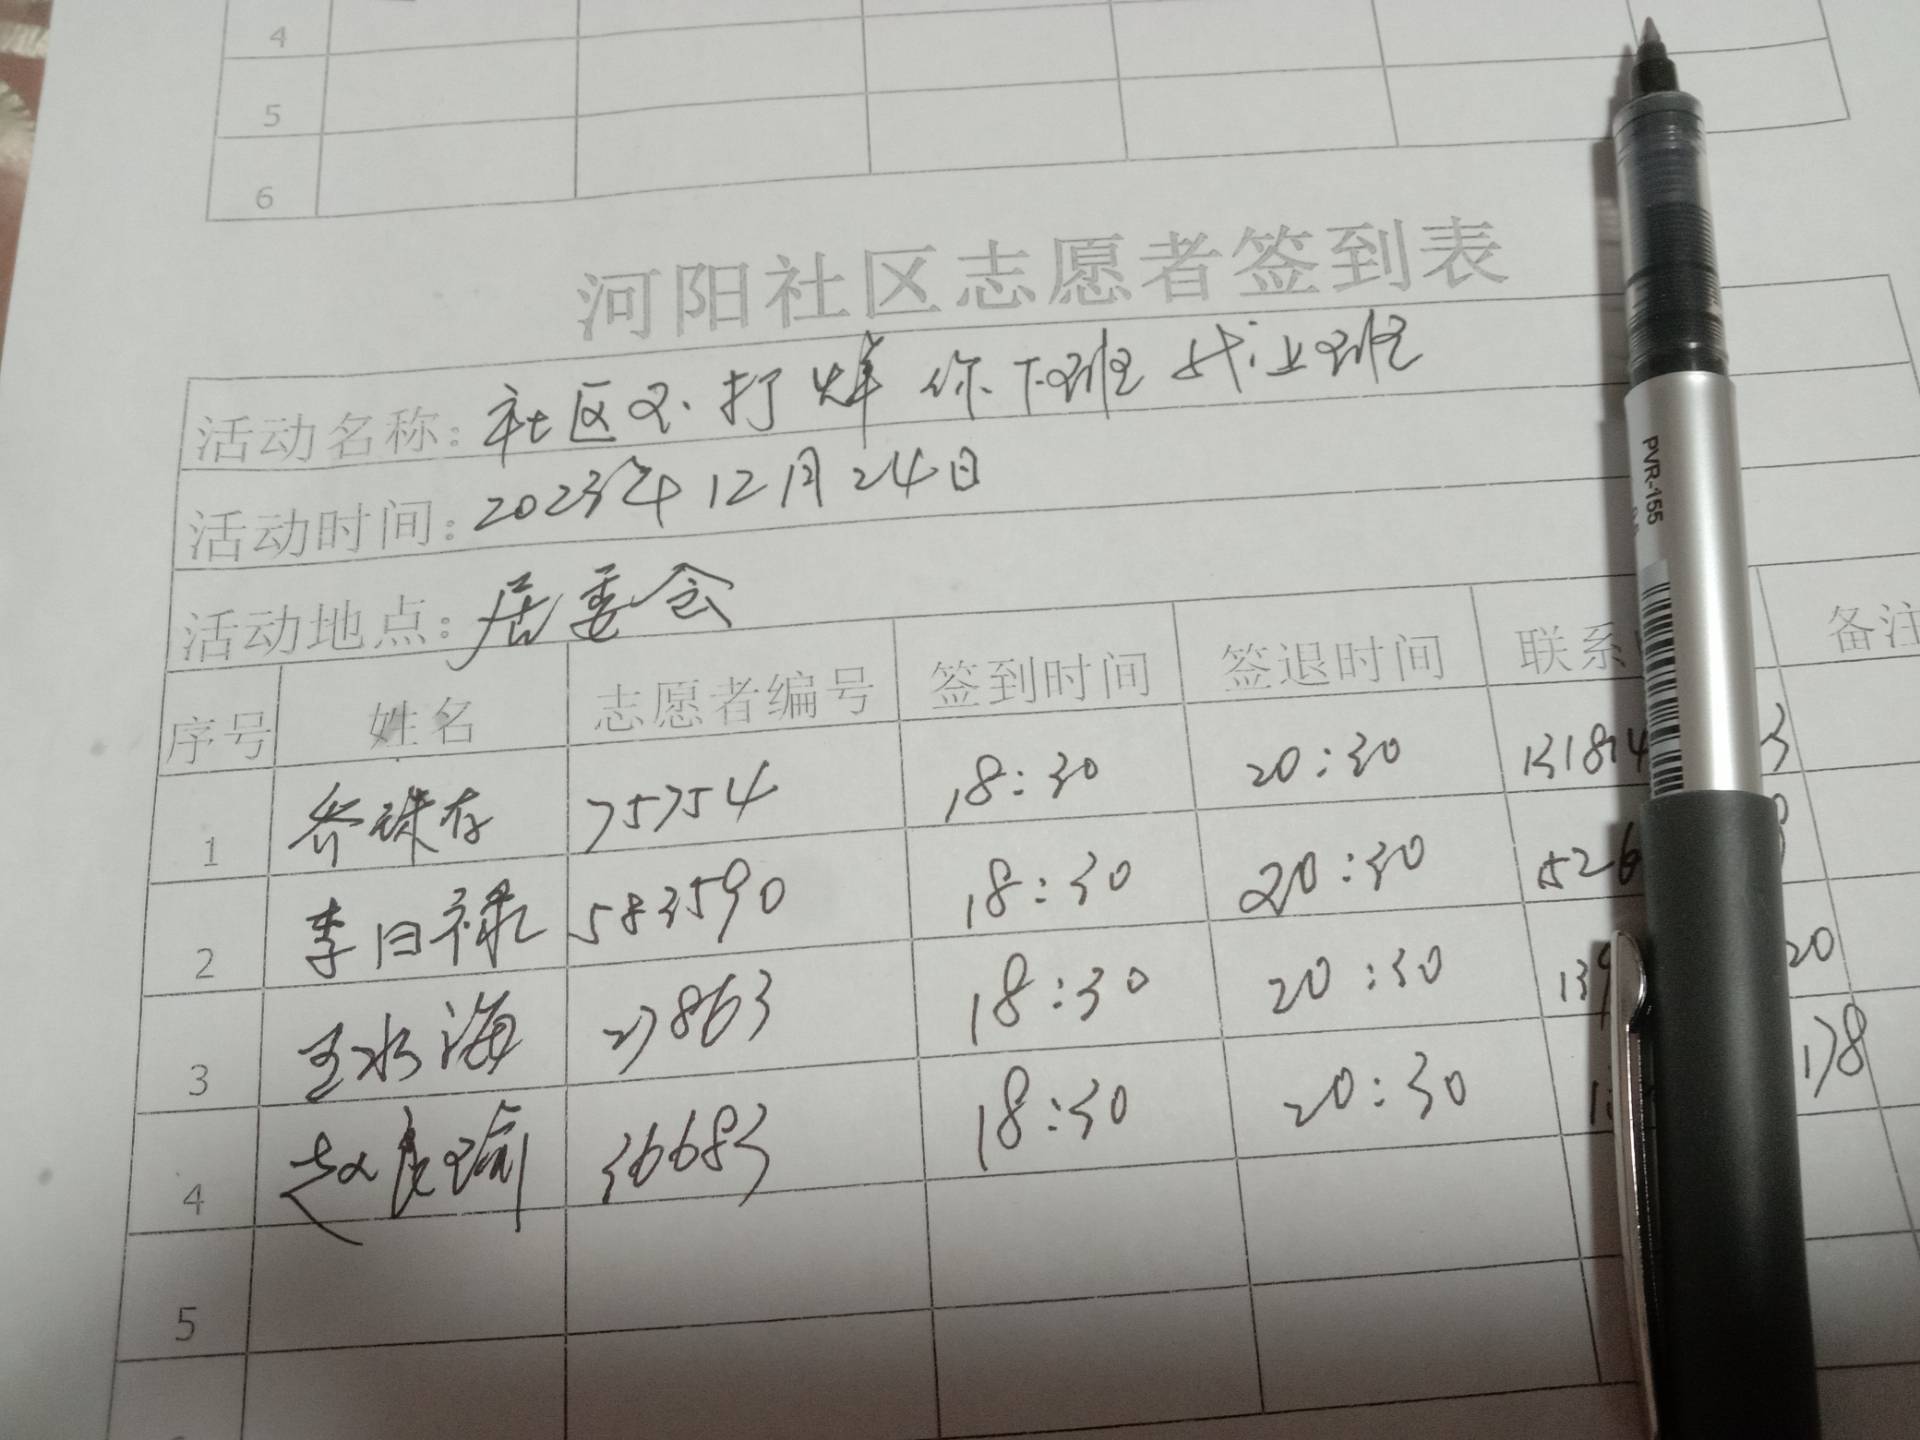 4
5
6
河阳社区志愿者签到表
活动名称: 社区不打烊 你下班 我上班
活动时间: 2023年12月24日
活动地点: 居委会
序号 姓名 志愿者编号 签到时间 签退时间 联系 备注
1 乔珠存 75754 18:30 20:30 131814 3
2 李日禄 583590 18:30 20:30 1526
3 王水海 27863 18:30 20:30 139 20
4 赵良瑜 36683 18:30 20:30 178
5
PVR-155